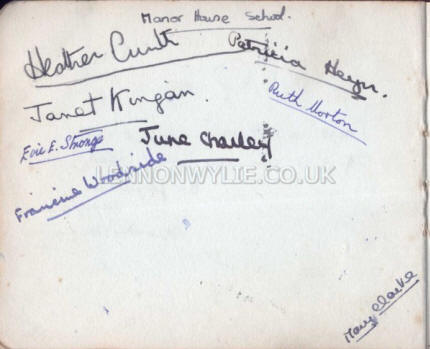 Manor House School.
Heather
Patricia
Janet Kingan.
Ruth Morton
Evie E. Stronge
June Charley
LENNONWYLIE.CO.UK
Francine Woodside
Mary Clarke